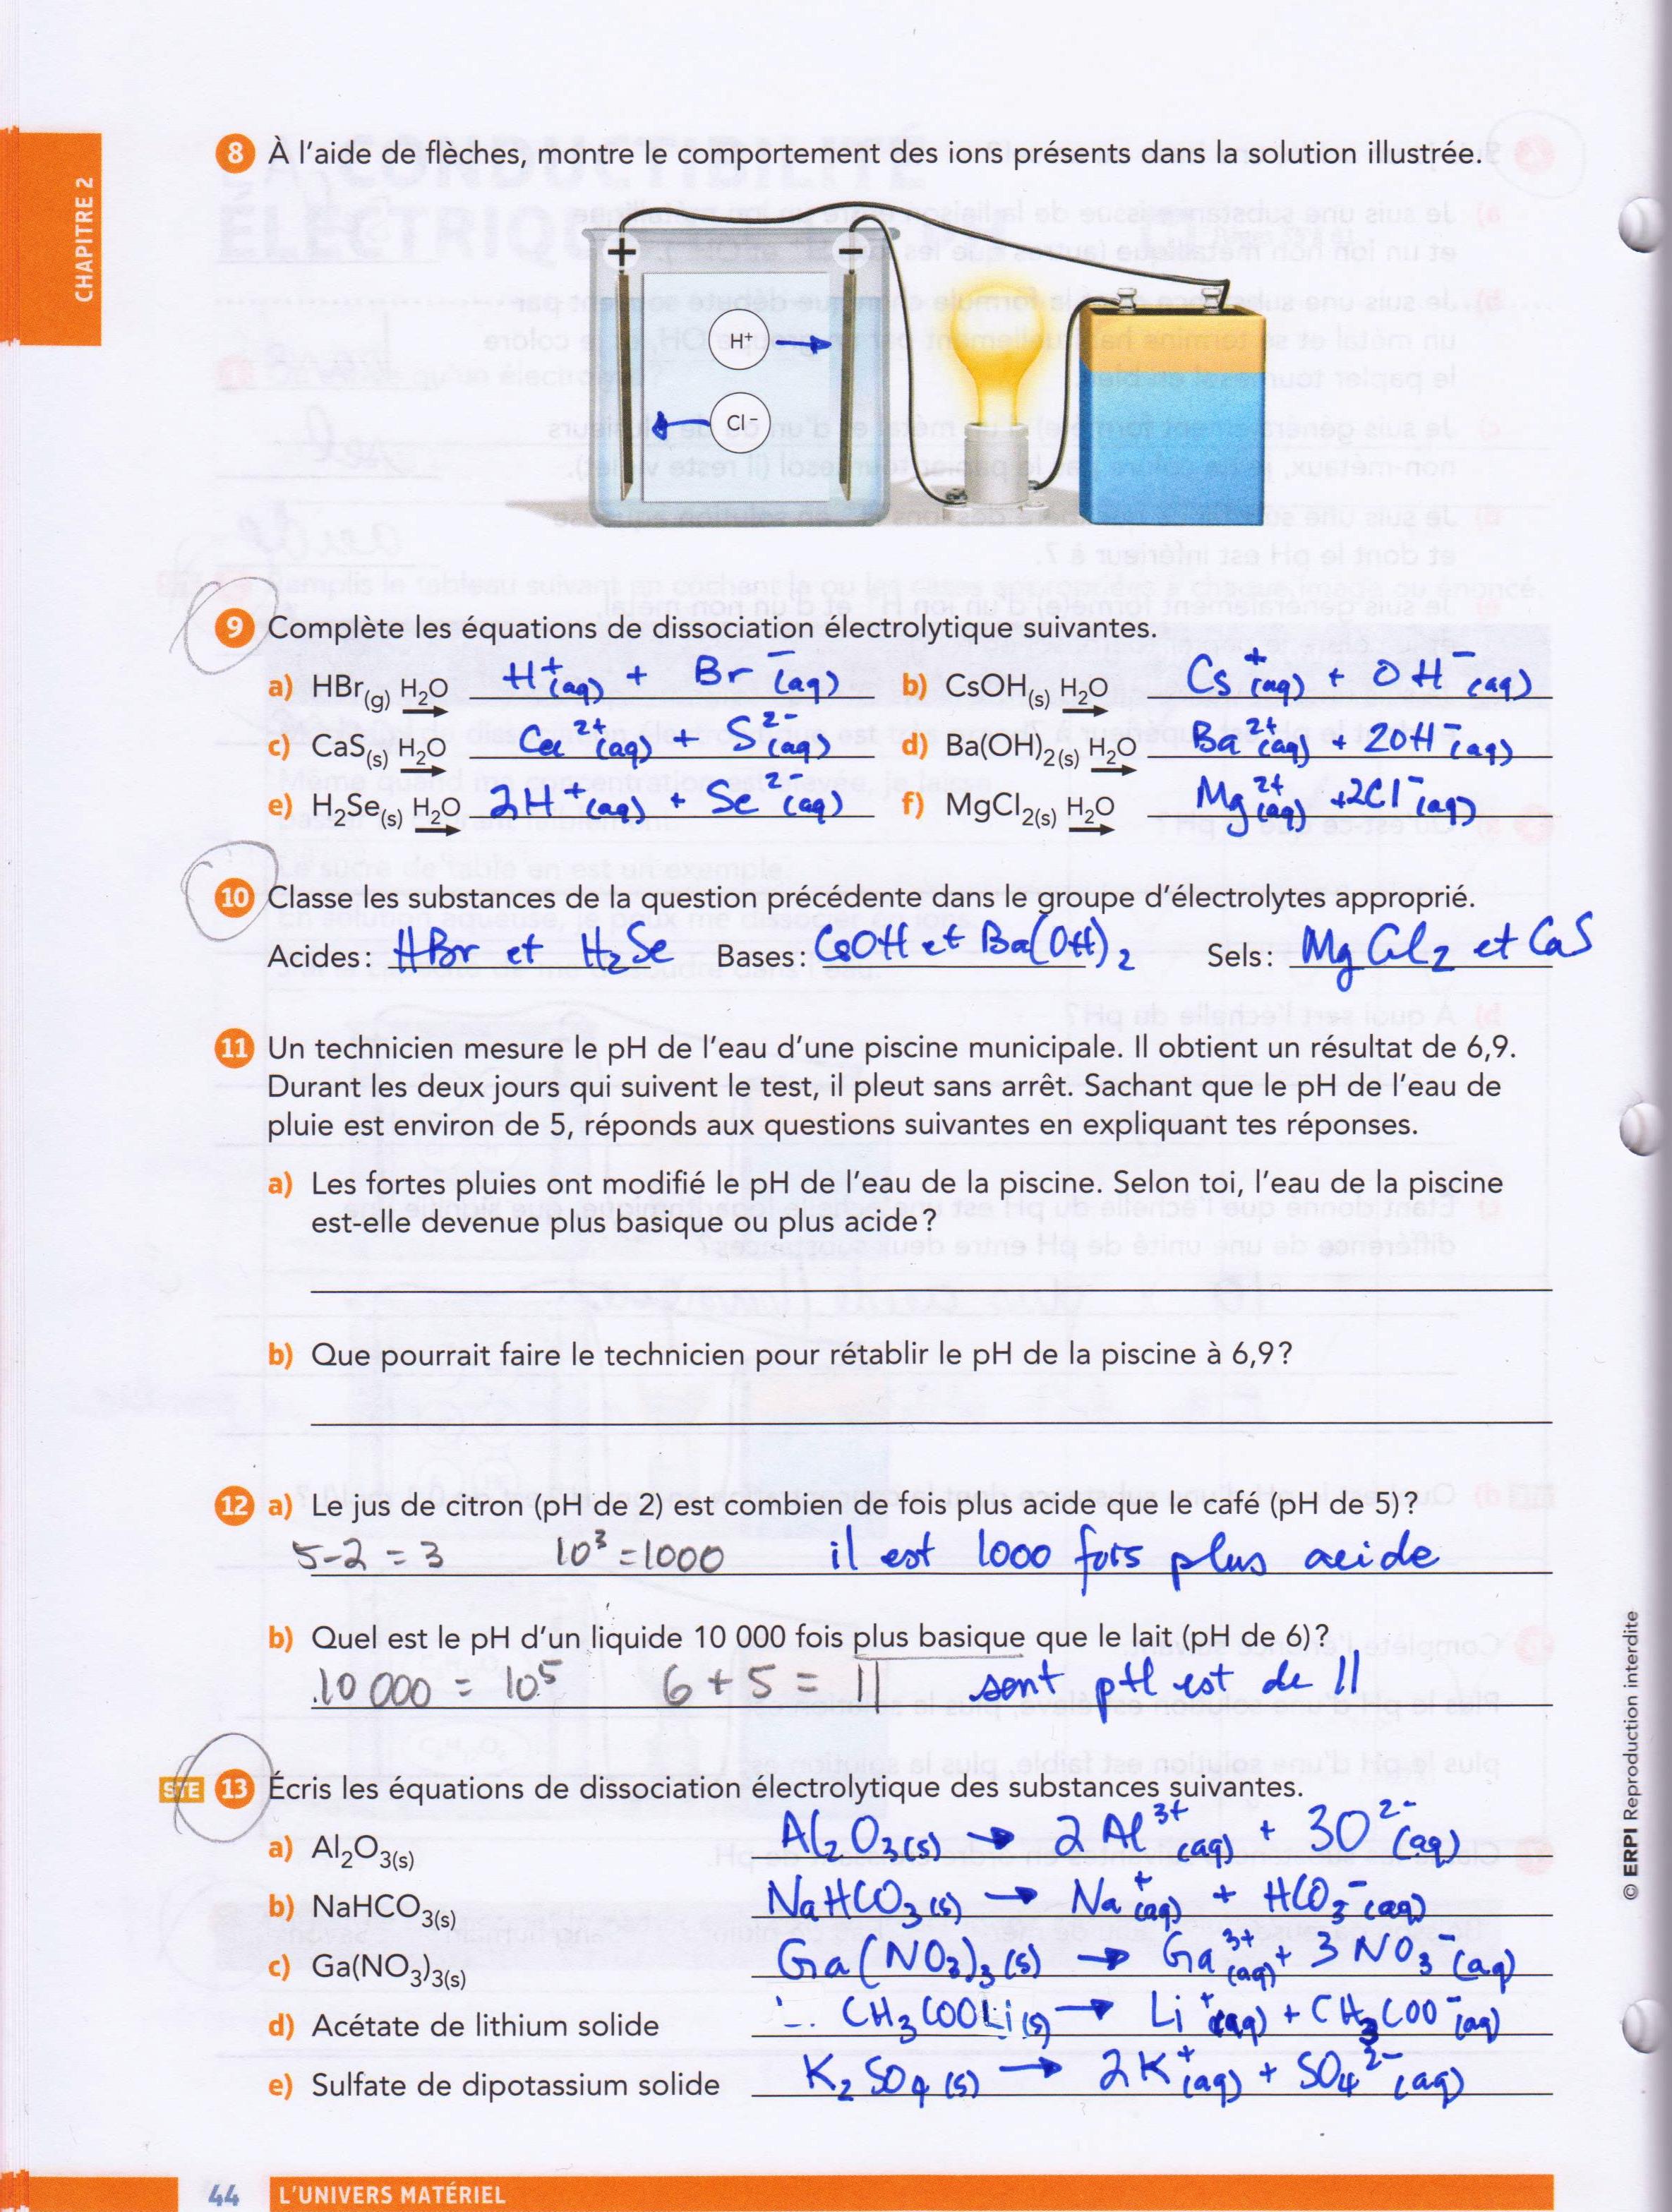 CHAPITRE 2
8 À l'aide de flèches, montre le comportement des ions présents dans la solution illustrée.
+ −
H⁺
Cl⁻
9 Complète les équations de dissociation électrolytique suivantes.
a) HBr(g) H₂O → H⁺(aq) + Br⁻(aq) b) CsOH(s) H₂O → Cs⁺(aq) + OH⁻(aq)
c) CaS(s) H₂O → Ca²⁺(aq) + S²⁻(aq) d) Ba(OH)₂(s) H₂O → Ba²⁺(aq) + 2OH⁻(aq)
e) H₂Se(s) H₂O → 2H⁺(aq) + Se²⁻(aq) f) MgCl₂(s) H₂O → Mg²⁺(aq) + 2Cl⁻(aq)
10 Classe les substances de la question précédente dans le groupe d'électrolytes approprié.
Acides : HBr et H₂Se Bases : CsOH et Ba(OH)₂ Sels : MgCl₂ et CaS
11 Un technicien mesure le pH de l'eau d'une piscine municipale. Il obtient un résultat de 6,9.
Durant les deux jours qui suivent le test, il pleut sans arrêt. Sachant que le pH de l'eau de
pluie est environ de 5, réponds aux questions suivantes en expliquant tes réponses.
a) Les fortes pluies ont modifié le pH de l'eau de la piscine. Selon toi, l'eau de la piscine
est-elle devenue plus basique ou plus acide ?
b) Que pourrait faire le technicien pour rétablir le pH de la piscine à 6,9 ?
12 a) Le jus de citron (pH de 2) est combien de fois plus acide que le café (pH de 5) ?
5-2 = 3 10³ = 1000 il est 1000 fois plus acide
b) Quel est le pH d'un liquide 10 000 fois plus basique que le lait (pH de 6) ?
10 000 = 10⁵ 6 + 5 = 11 sont pH est de 11
STE 13 Écris les équations de dissociation électrolytique des substances suivantes.
a) Al₂O₃(s) Al₂O₃(s) → 2 Al³⁺(aq) + 3O²⁻(aq)
b) NaHCO₃(s) NaHCO₃(s) → Na⁺(aq) + HCO₃⁻(aq)
c) Ga(NO₃)₃(s) Ga(NO₃)₃(s) → Ga³⁺(aq) + 3 NO₃⁻(aq)
d) Acétate de lithium solide CH₃COOLi(s) → Li⁺(aq) + CH₃COO⁻(aq)
e) Sulfate de dipotassium solide K₂SO₄(s) → 2K⁺(aq) + SO₄²⁻(aq)
© ERPI Reproduction interdite
44 L'UNIVERS MATÉRIEL